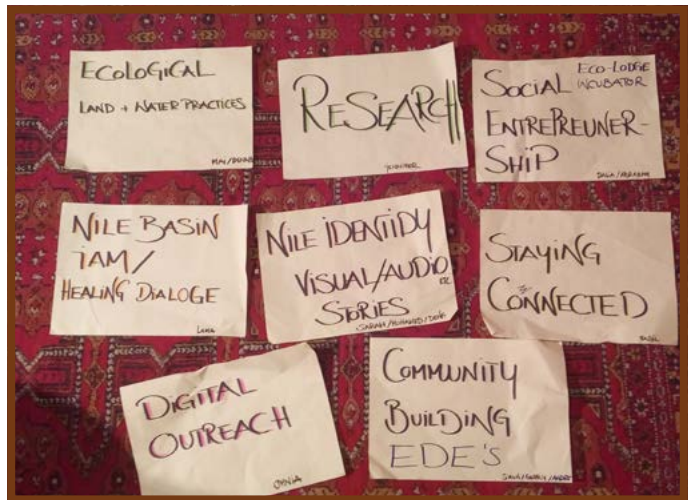 ECOLOGICAL
LAND + WATER PRACTICES
RESEARCH
JENNIFER
SOCIAL ECO-LODGE
INCUBATOR
ENTREPREUNER-
SHIP
NILE BASIN
JAM/
HEALING DIALOGE
LAMA
NILE IDENTIDY
VISUAL/AUDIO
STORIES
STAYING
CONNECTED
BASIL
DIGITAL
OUTREACH
COMMUNITY
BUILDING
EDE'S